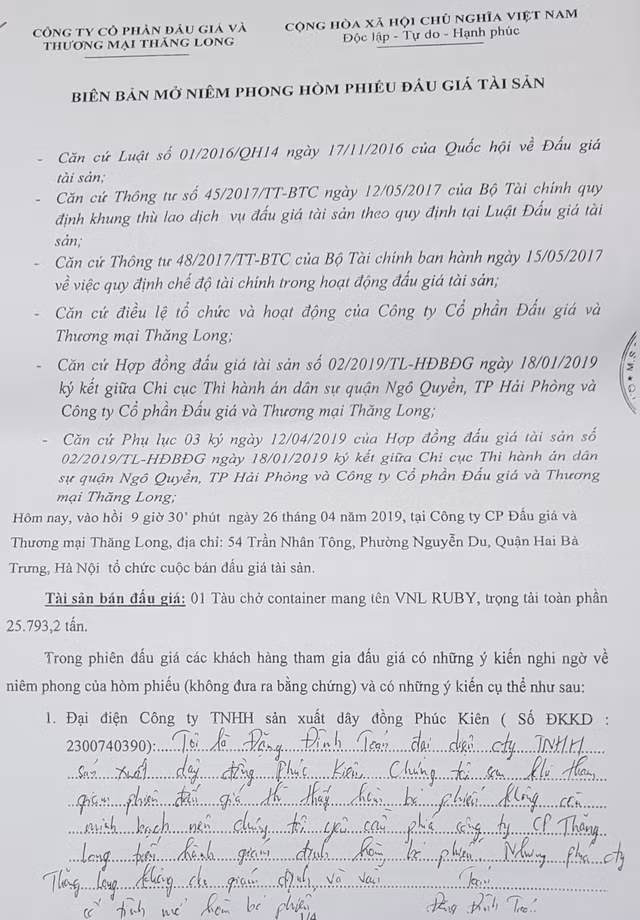 CÔNG TY CỔ PHẦN ĐẤU GIÁ VÀ
THƯƠNG MẠI THĂNG LONG
CỘNG HÒA XÃ HỘI CHỦ NGHĨA VIỆT NAM
Độc lập - Tự do - Hạnh phúc
BIÊN BẢN MỞ NIÊM PHONG HÒM PHIẾU ĐẤU GIÁ TÀI SẢN
- Căn cứ Luật số 01/2016/QH14 ngày 17/11/2016 của Quốc hội về Đấu giá
tài sản;
- Căn cứ Thông tư số 45/2017/TT-BTC ngày 12/05/2017 của Bộ Tài chính quy
định khung thù lao dịch vụ đấu giá tài sản theo quy định tại Luật Đấu giá tài
sản;
- Căn cứ Thông tư 48/2017/TT-BTC của Bộ Tài chính ban hành ngày 15/05/2017
về việc quy định chế độ tài chính trong hoạt động đấu giá tài sản;
- Căn cứ điều lệ tổ chức và hoạt động của Công ty Cổ phần Đấu giá và
Thương mại Thăng Long;
- Căn cứ Hợp đồng đấu giá tài sản số 02/2019/TL-HĐBĐG ngày 18/01/2019
ký kết giữa Chi cục Thi hành án dân sự quận Ngô Quyền, TP Hải Phòng và
Công ty Cổ phần Đấu giá và Thương mại Thăng Long;
- Căn cứ Phụ lục 03 ký ngày 12/04/2019 của Hợp đồng đấu giá tài sản số
02/2019/TL-HĐBĐG ngày 18/01/2019 ký kết giữa Chi cục Thi hành án dân
sự quận Ngô Quyền, TP Hải Phòng và Công ty Cổ phần Đấu giá và Thương
mại Thăng Long;
Hôm nay, vào hồi 9 giờ 30' phút ngày 26 tháng 04 năm 2019, tại Công ty CP Đấu giá và
Thương mại Thăng Long, địa chỉ: 54 Trần Nhân Tông, Phường Nguyễn Du, Quận Hai Bà
Trưng, Hà Nội tổ chức cuộc bán đấu giá tài sản.
Tài sản bán đấu giá: 01 Tàu chở container mang tên VNL RUBY, trọng tải toàn phần
25.793,2 tấn.
Trong phiên đấu giá các khách hàng tham gia đấu giá có những ý kiến nghi ngờ về
niêm phong của hòm phiếu (không đưa ra bằng chứng) và có những ý kiến cụ thể như sau:
1. Đại điện Công ty TNHH sản xuất dây đồng Phúc Kiên ( Số ĐKKD :
2300740390): Tôi là Đặng Đình Toán đại diện cty TNHH
sản xuất dây đồng Phúc Kiên. Chúng tôi sau khi tham
phiên đấu giá thì thấy hòm bỏ phiếu không còn
minh bạch nên chúng tôi yêu cầu phía công ty CP Thăng
Long tiến hành giám định hòm bỏ phiếu. Nhưng phía cty
Thăng Long không cho giám định, và vẫn
cố tình mở hòm bỏ phiếu
Toán
Đặng Đình Toán
1/4